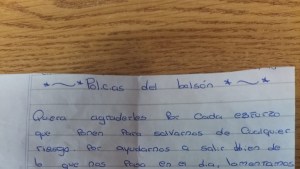 *~*Policas del bolsón *~*
Quera agradarles Por Cada esfuerzo
que Ponen Para salvarnos de Cualquier
riesgo. Por ayudarnos a salir bien de
lo que nos Pasa en el dia, lamentamos